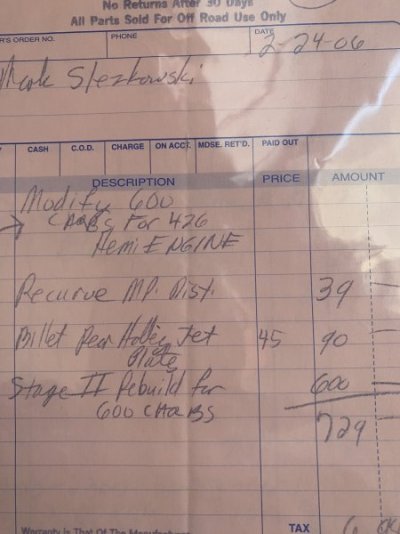 No Returns After 30 Days
All Parts Sold For Off Road Use Only
R'S ORDER NO. PHONE DATE
2-24-06
Mark
CASH C.O.D. CHARGE ON ACCT. MDSE. RET'D. PAID OUT
DESCRIPTION PRICE AMOUNT
Modify 600
CARBS For 426
Hemi ENGINE
Recurve MP. Dist. 39
Billet Rear Holley Jet 45 90
Plate
Stage II Rebuild for 600
600 CARBS
729
Warranty is That Of The Manufacturer
TAX